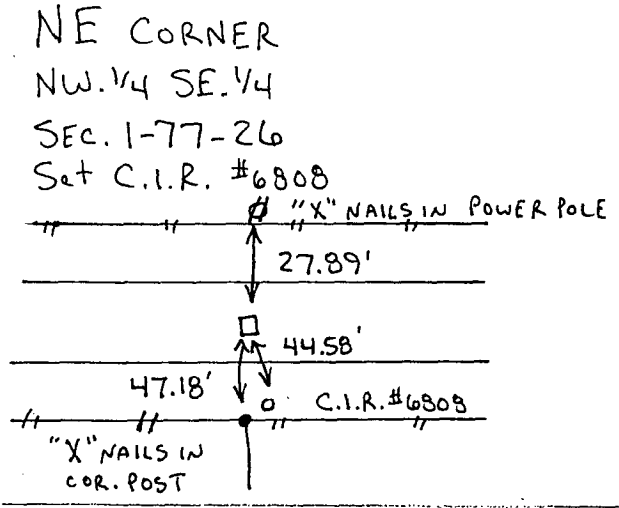 NE CORNER
NW.1/4 SE.1/4
SEC. 1-77-26
Set C.I.R. #6808
"X" NAILS IN POWER POLE
27.89'
44.58'
47.18'
C.I.R.#6808
"X" NAILS IN
COR. POST